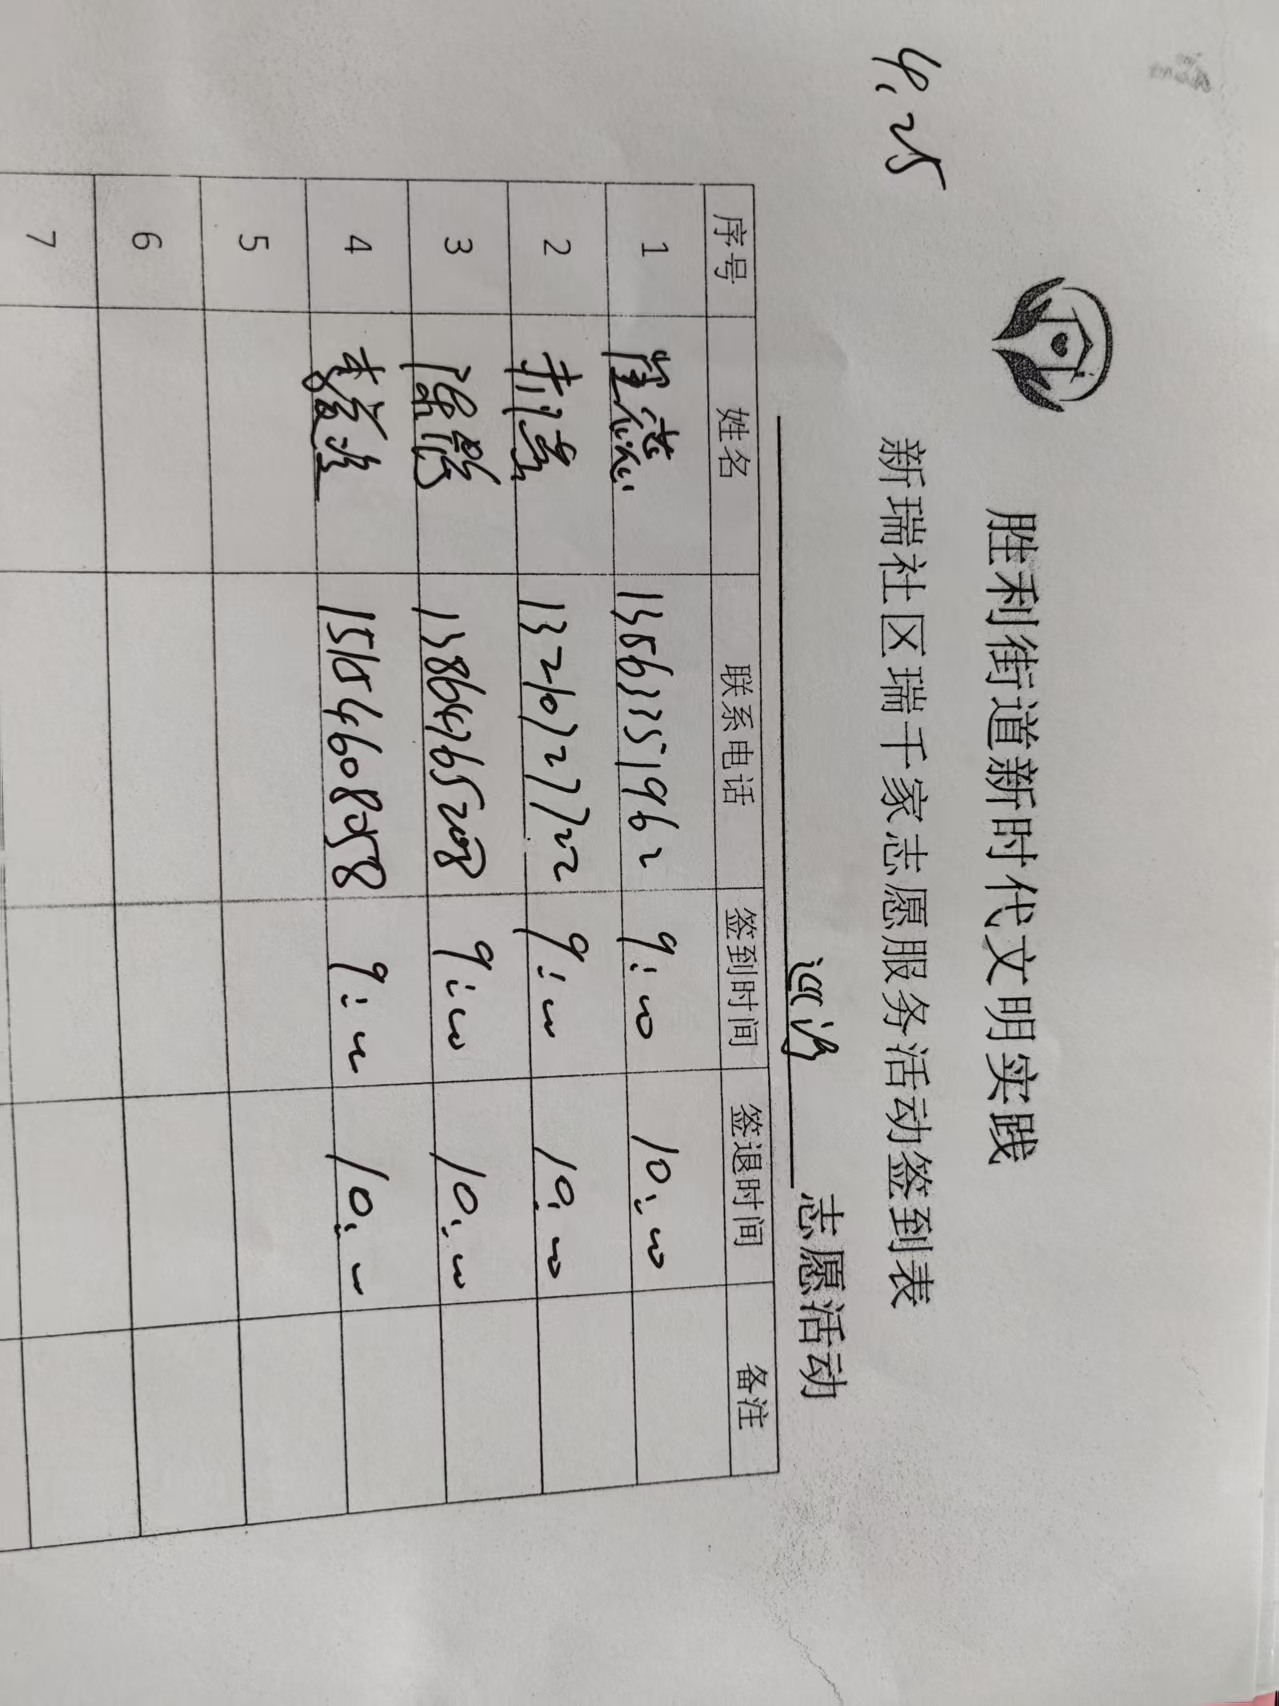 4.25
胜利街道新时代文明实践
新瑞社区瑞千家志愿服务活动签到表
巡逻 志愿活动
序号 姓名 联系电话 签到时间 签退时间 备注
1 13563351962 9:00 10:00
2 13210727722 9:00 10:00
3 陈鹏 13864765208 9:00 10:00
4 15154608058 9:00 10:00
5
6
7